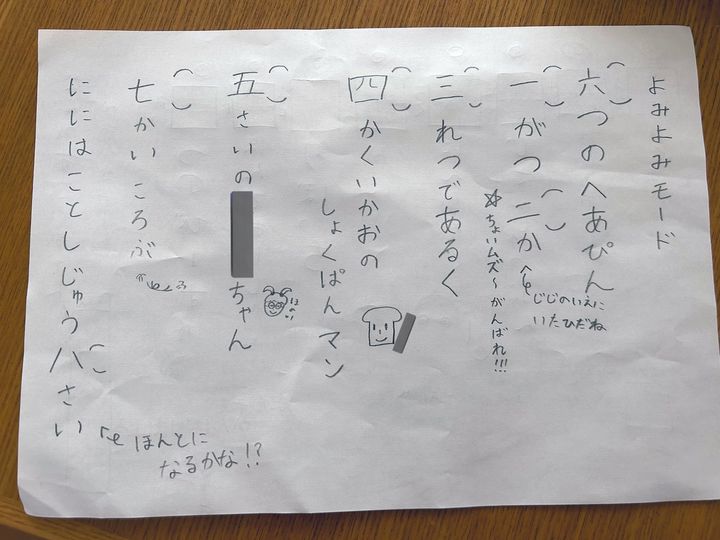 よみよみモード
六つのへあぴん
一がつ二か
じじのいえに
いたひだね
☆ちょいムズ〜がんばれ!!!
三れつであるく
四かくいかおの
しょくぱんマン
五さいの
ちゃん
七かいころぶ
ににはことしじゅう八さい
ほんとに
なるかな!?